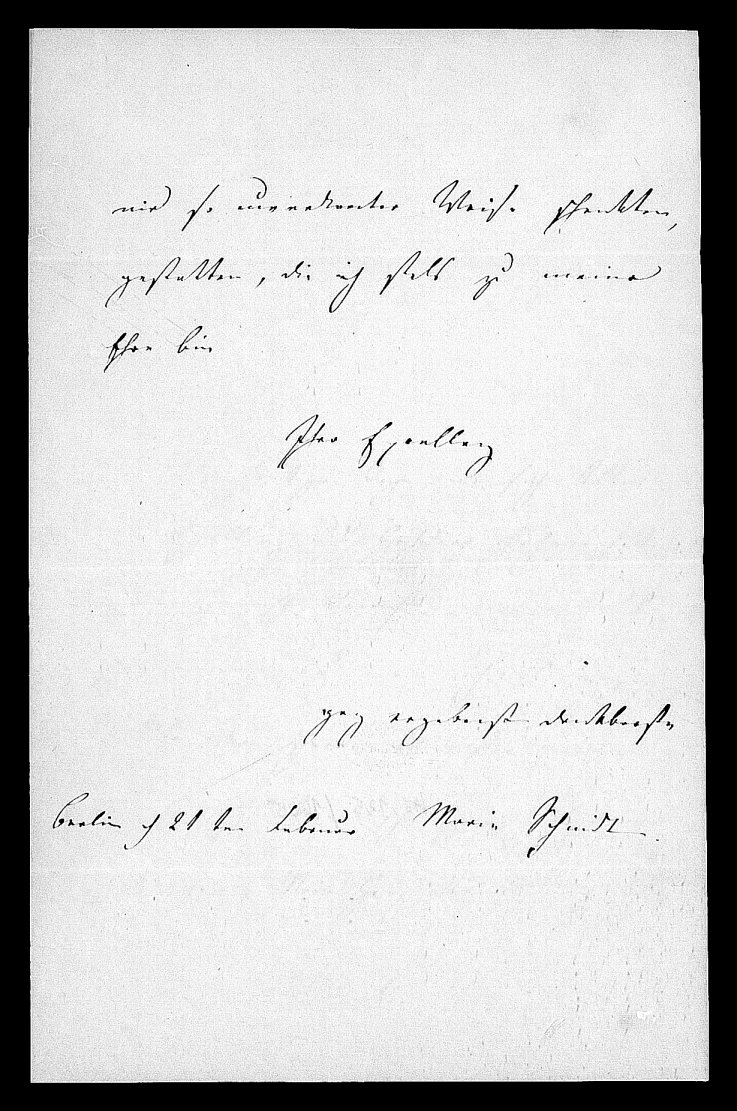 mir so unverdienter Weise schenkten,
gestatten, die ich stets zu meiner
Ehre bin
Ihrer Excellenz
ganz ergebenste dankbarste
Berlin d 21ten Februar Marie Schmidt.